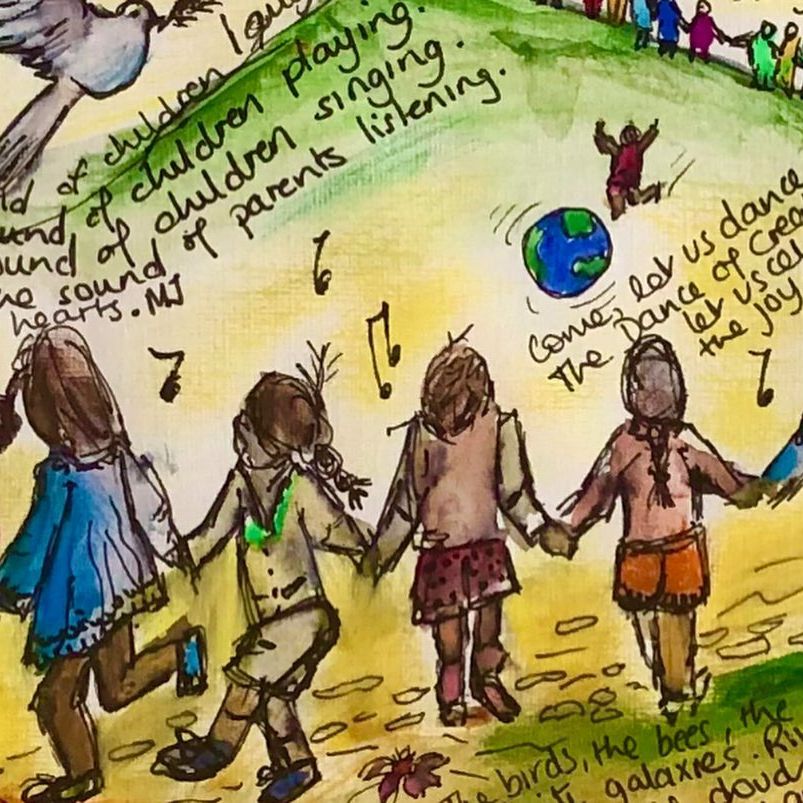 of children laug
und of children playing.
ound of children singing.
he sound of parents listening.
hearts. MJ
Come, let us dance
The Dance of Crea
let us cel
the joy
the birds, the bees, the
galaxies. Ri
cloud